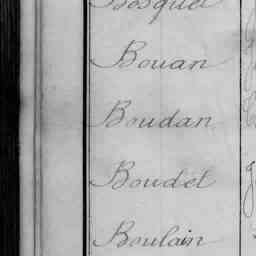 Bosquet
Bouan
Boudan
Boudet
Boulain